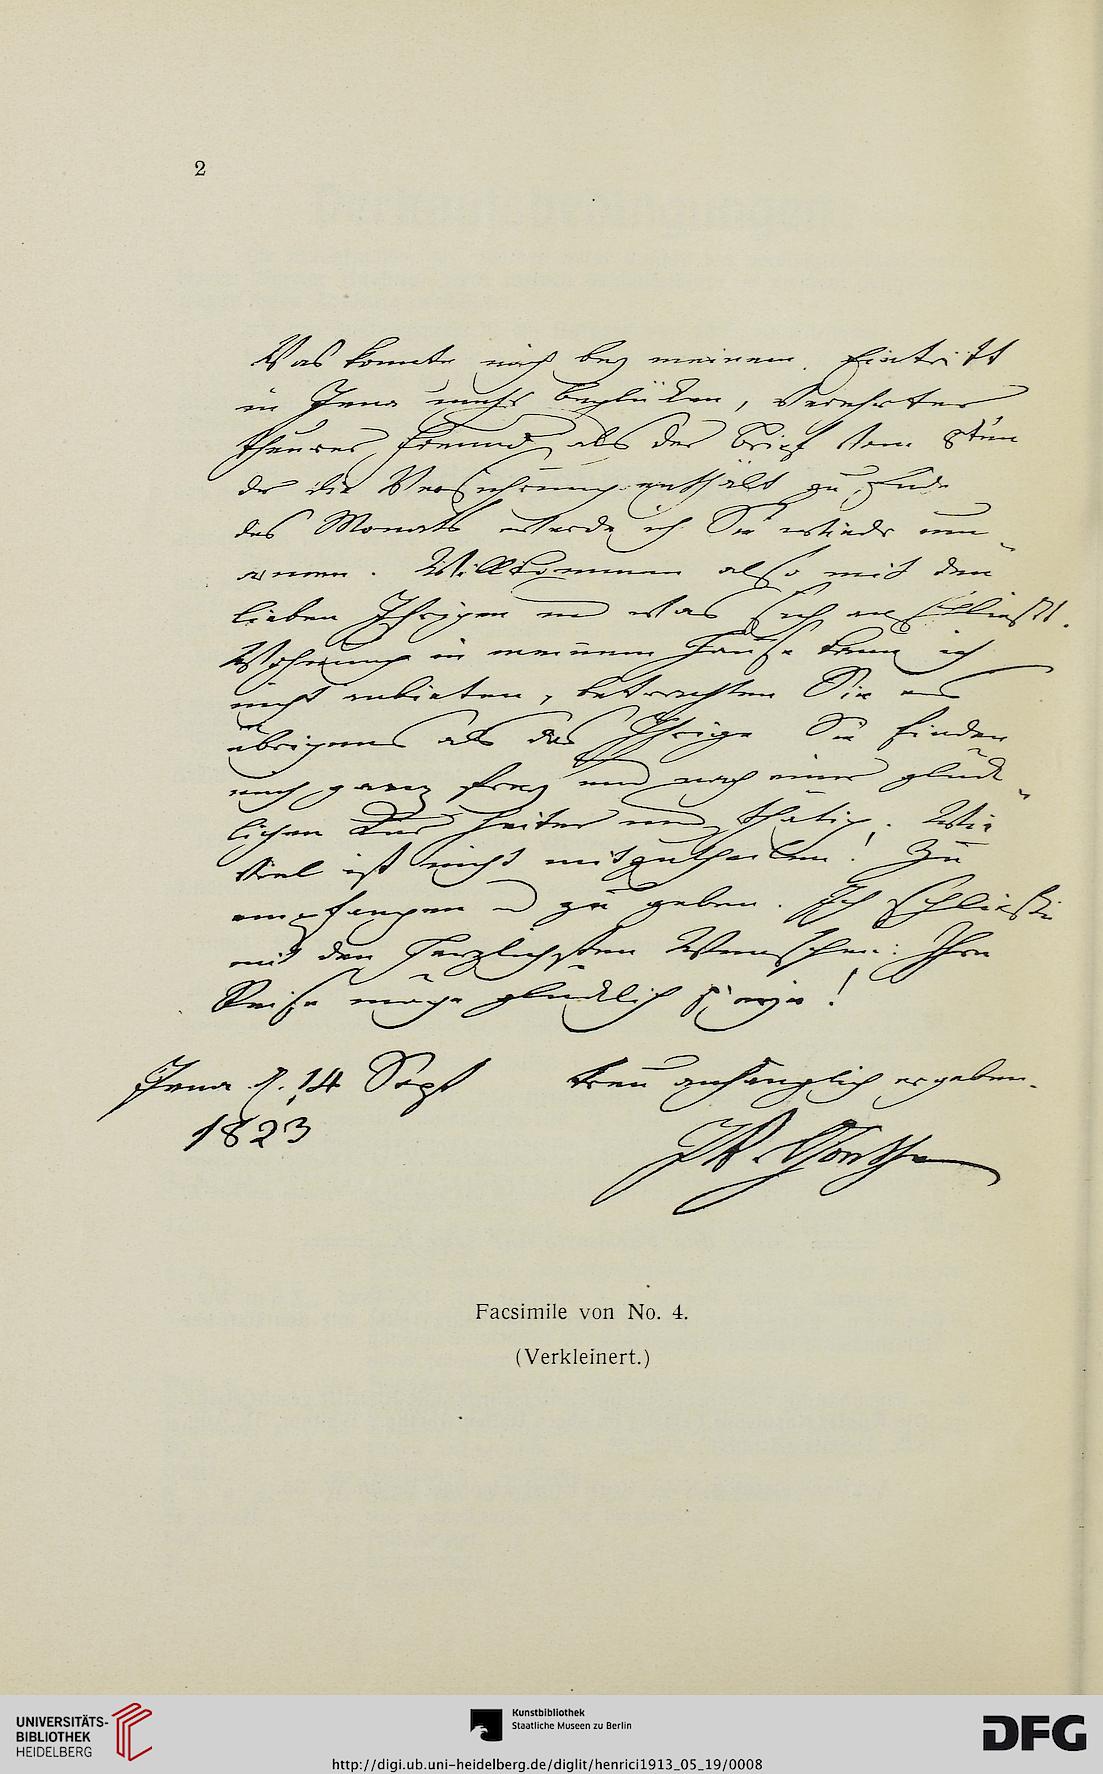 2
Was konnte mich bey meinem Eintritt
in Jena mehr beglücken, Verehrter
theurer Freund, als der Brief vom 8ten
der die Versichrung enthält zu Ende
des Monats werde ich Sie wieder um
armen. Willkommen also mit den
lieben Ihrigen und was sich anschließt.
Wohnung in meinem Hause kann ich
nicht anbieten, betrachten Sie es
übrigens als das Ihrige Sie finden
mich ganz frey und nach einer glück
lichen Cur heiter und thätig. Wie
viel ist nicht mitzutheilen! Zu
empfangen und zu geben. Ich schließe
mit den herzlichsten Wünschen: Ihre
Reise möge glücklich seyn!
Jena d. 14 Sept treu anhänglich ergeben.
1823
JWvGoethe
Facsimile von No. 4.
(Verkleinert.)
UNIVERSITÄTS-
BIBLIOTHEK
HEIDELBERG
Kunstbibliothek
Staatliche Museen zu Berlin
DFG
http://digi.ub.uni-heidelberg.de/diglit/henrici1913_05_19/0008